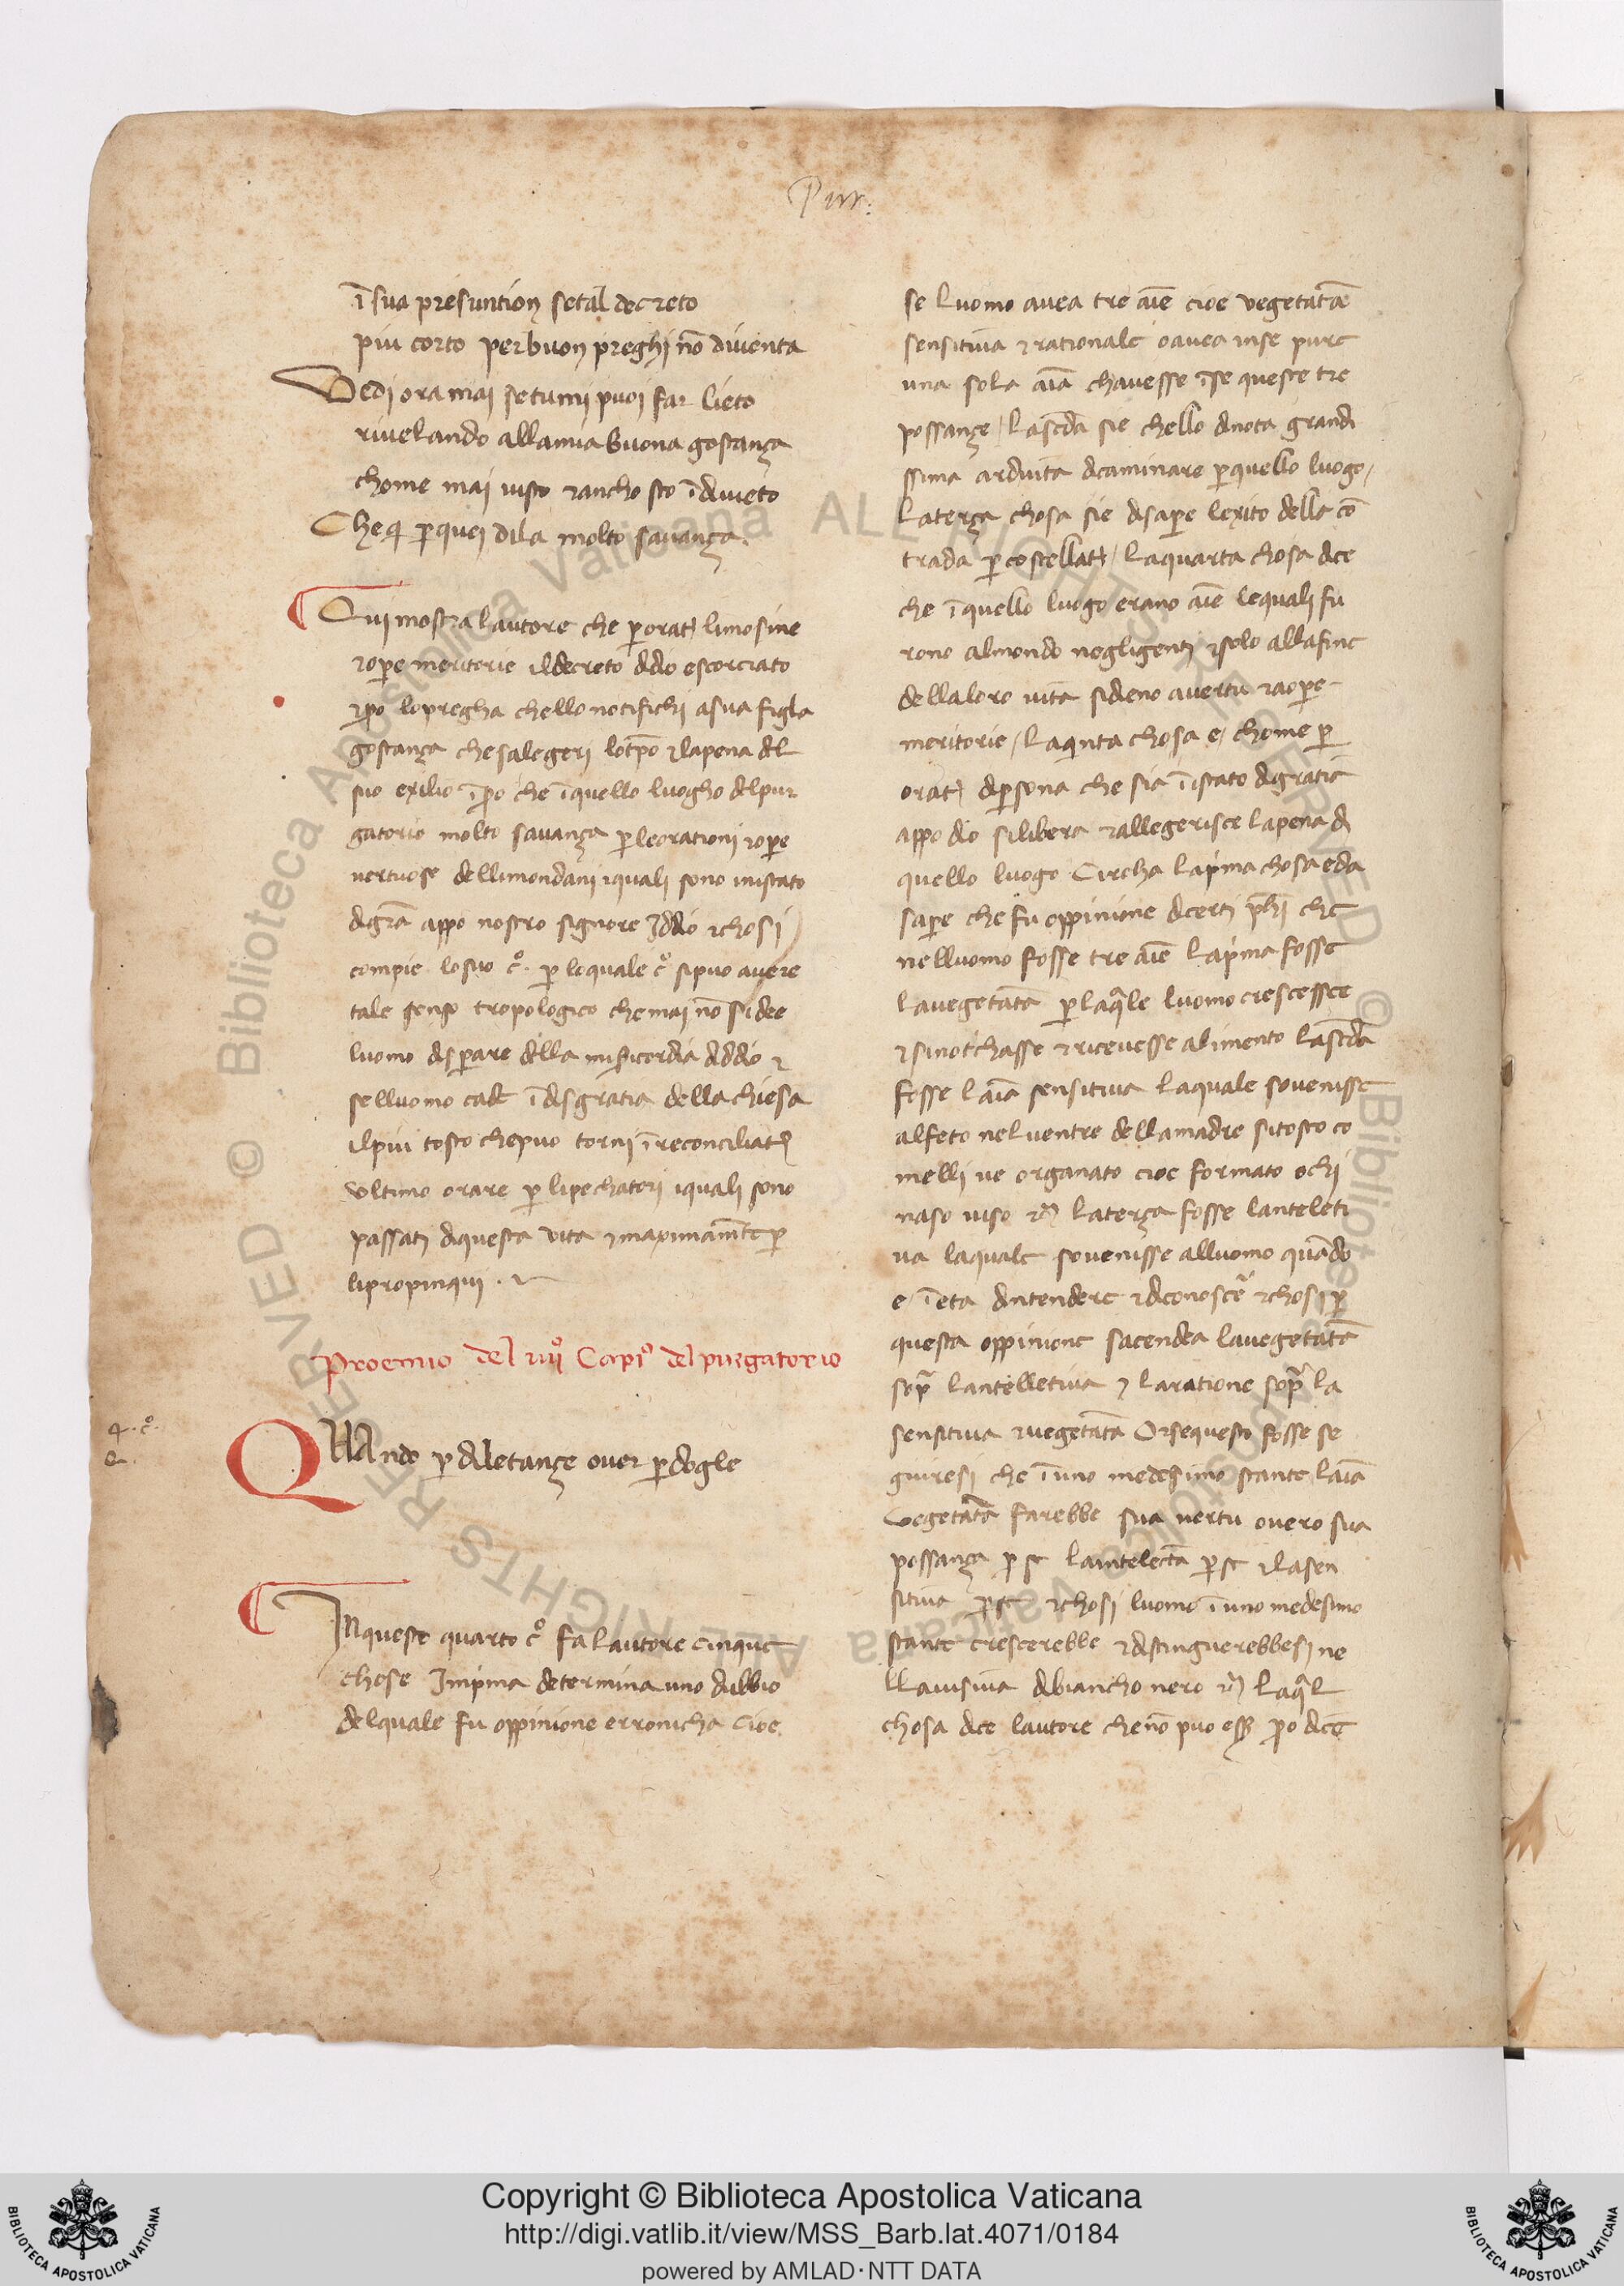 Pur:
ī sua presuntion setal decreto
piu corto per buon preghi nō diventa
Vedi ora mai se tu mi puoi far lieto
rivelando alla mia buona gostança
chome mai visto ⁊ ancho sto īdiveto
Che q̄ p̄ quei di la molto savança.
Qui mostra lautore che p̄ orat̄ limosine
⁊ op̄e meritorie il decreto d dio e scorciato
⁊ p̄o lo pregha chello notifichi a sua figla
gostança che salegeri lo tp̄o ⁊ la pena dl
suo exilio ī p̄o che ī quello luogho del pur
gatorio molto savança p̄ le orationi ⁊ op̄e
vertuose delli mondani i quali sono in istato
d grā appo nostro signore Iddio ⁊ chosi
compie lo suo c̊. p̄ lo quale c̊ si puo avere
tale senso tropologico che mai nō si dee
luomo disp̄are della misicordia d ddio ⁊
se lluomo cade ī disgratia della chiesa
il piu tosto che puo torni ī reconciliat̄
ultimo orare p̄ li pechatori i quali sono
passati d questa vita ⁊ maximamēte p̄
li propinqui .
Proemio del iiii̊ Capi̊ del purgatorio
4. c̊.
Q
QUAndo p̄ diletançe over p̄ dogle
IN questo quarto c̊ fa lautore cinque
chose In p̄ima determina uno dubbio
del quale fu oppinione erronicha cioe.
se luomo avea tre aīe cioe vegetatāe
sensitiva ⁊ rationale o avea in se pure
una sola aīa chavesse ī se queste tre
possançe / la scd̄a sie chello dinota grandi
ssima arduita d caminare p̄ quello luogo /
La terça chosa sie d sap̄e lexito della cō
trada p̄ costellat̄ / La quarta chosa dice
che ī quello luogo erano aīe le quali fu
rono al mondo negligenti ⁊ solo alla fine
della loro vita si deno a vertu ⁊ a op̄e
meritorie / La q̄nta chosa e / chome p̄
orat̄ d p̄sona che sia ī istato d gratia
appo dio si libera ⁊ allegerisce la pena d
quello luogo Circha la p̄ima chosa e da
sap̄e che fu oppinione d certi p̄hi che
nelluomo fosse tre aīe La p̄ima fosse
la vegetatā p̄ la q̄le luomo crescesse
⁊ si notichasse ⁊ ricevesse alimento La scd̄a
fosse laīa sensitiva la quale sovenisse
al feto nel ventre della madre si tosto co
melli ve organato cioe formato ochi
naso viso ⁊c̄ La terça fosse lanteleti
va la quale sovenisse alluomo quādo
e / ī eta d intendere ⁊ d conoscē ⁊ chosi p̄
questa oppinione sacendea la vegetatā
sop̄ lantelletiva ⁊ la ratione sop̄ la
sensitiva ⁊ vegetatā Or se questo fosse se
guiresi che ī uno medesimo stante laīa
vegetatā farebbe sua vertu overo sua
possança p̄ se laintelectā p̄ se ⁊ la sen
sitiva p̄ se ⁊ chosi luomo ī uno medesimo
stante crescerebbe ⁊ distinguerebbesi ne
lla visiva d biancho nero ⁊c̄ la q̄l
chosa dice lautore che nō puo eē p̄o dicē
Copyright © Biblioteca Apostolica Vaticana
http://digi.vatlib.it/view/MSS_Barb.lat.4071/0184
powered by AMLAD·NTT DATA